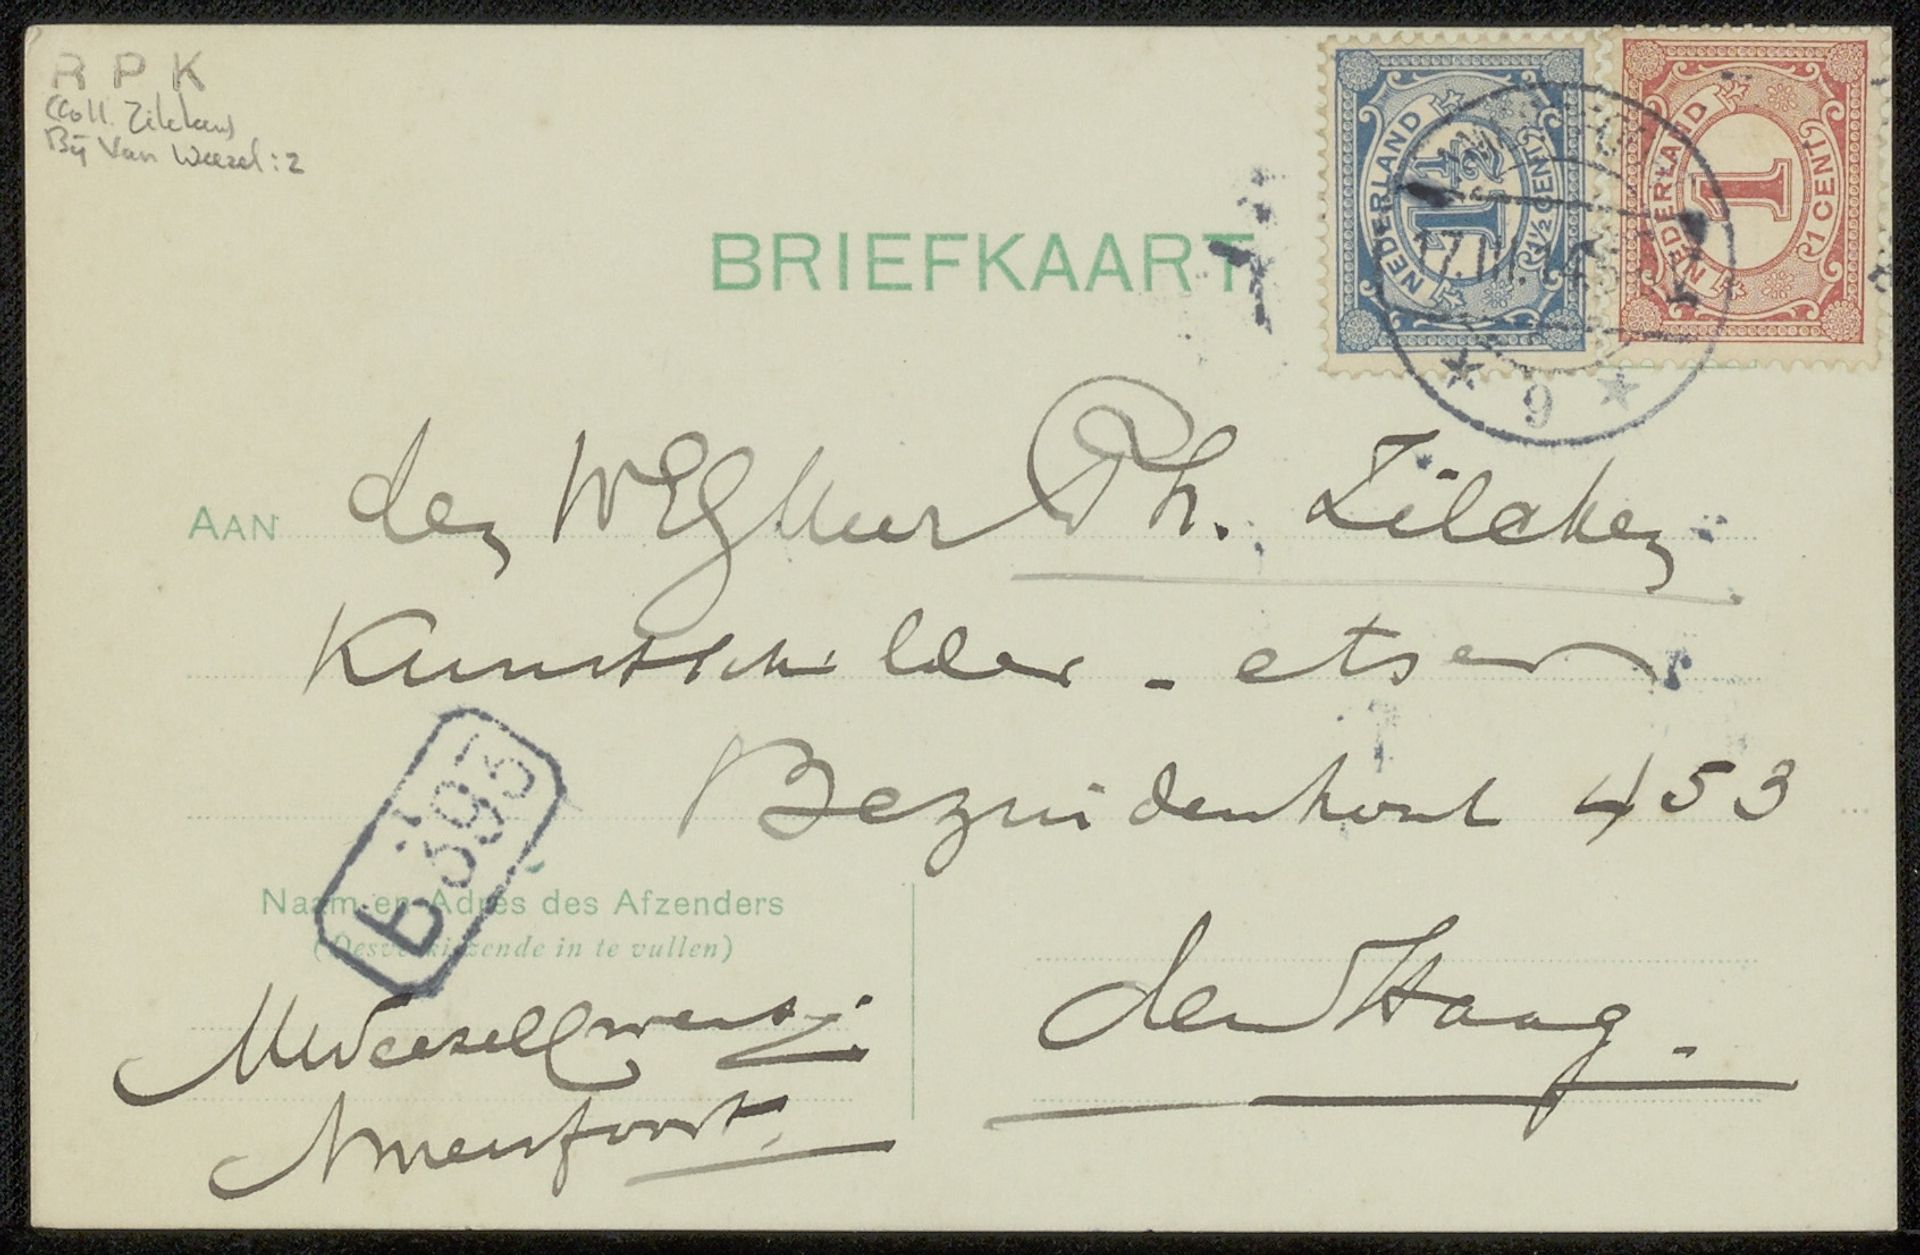 R P K
(Coll. Zilcken)
Bij Van Weezel: 2
BRIEFKAART
NEDERLAND 1½ 1½ CENT
NEDERLAND 1 1 CENT
17.III.
9
AAN den WEgHeer Ph. Zilcken
Kunstschilder - etser
Bezuidenhout 453
B 393
Naam en Adres des Afzenders
(Desverkiezende in te vullen)
den Haag.
Amersfoort.